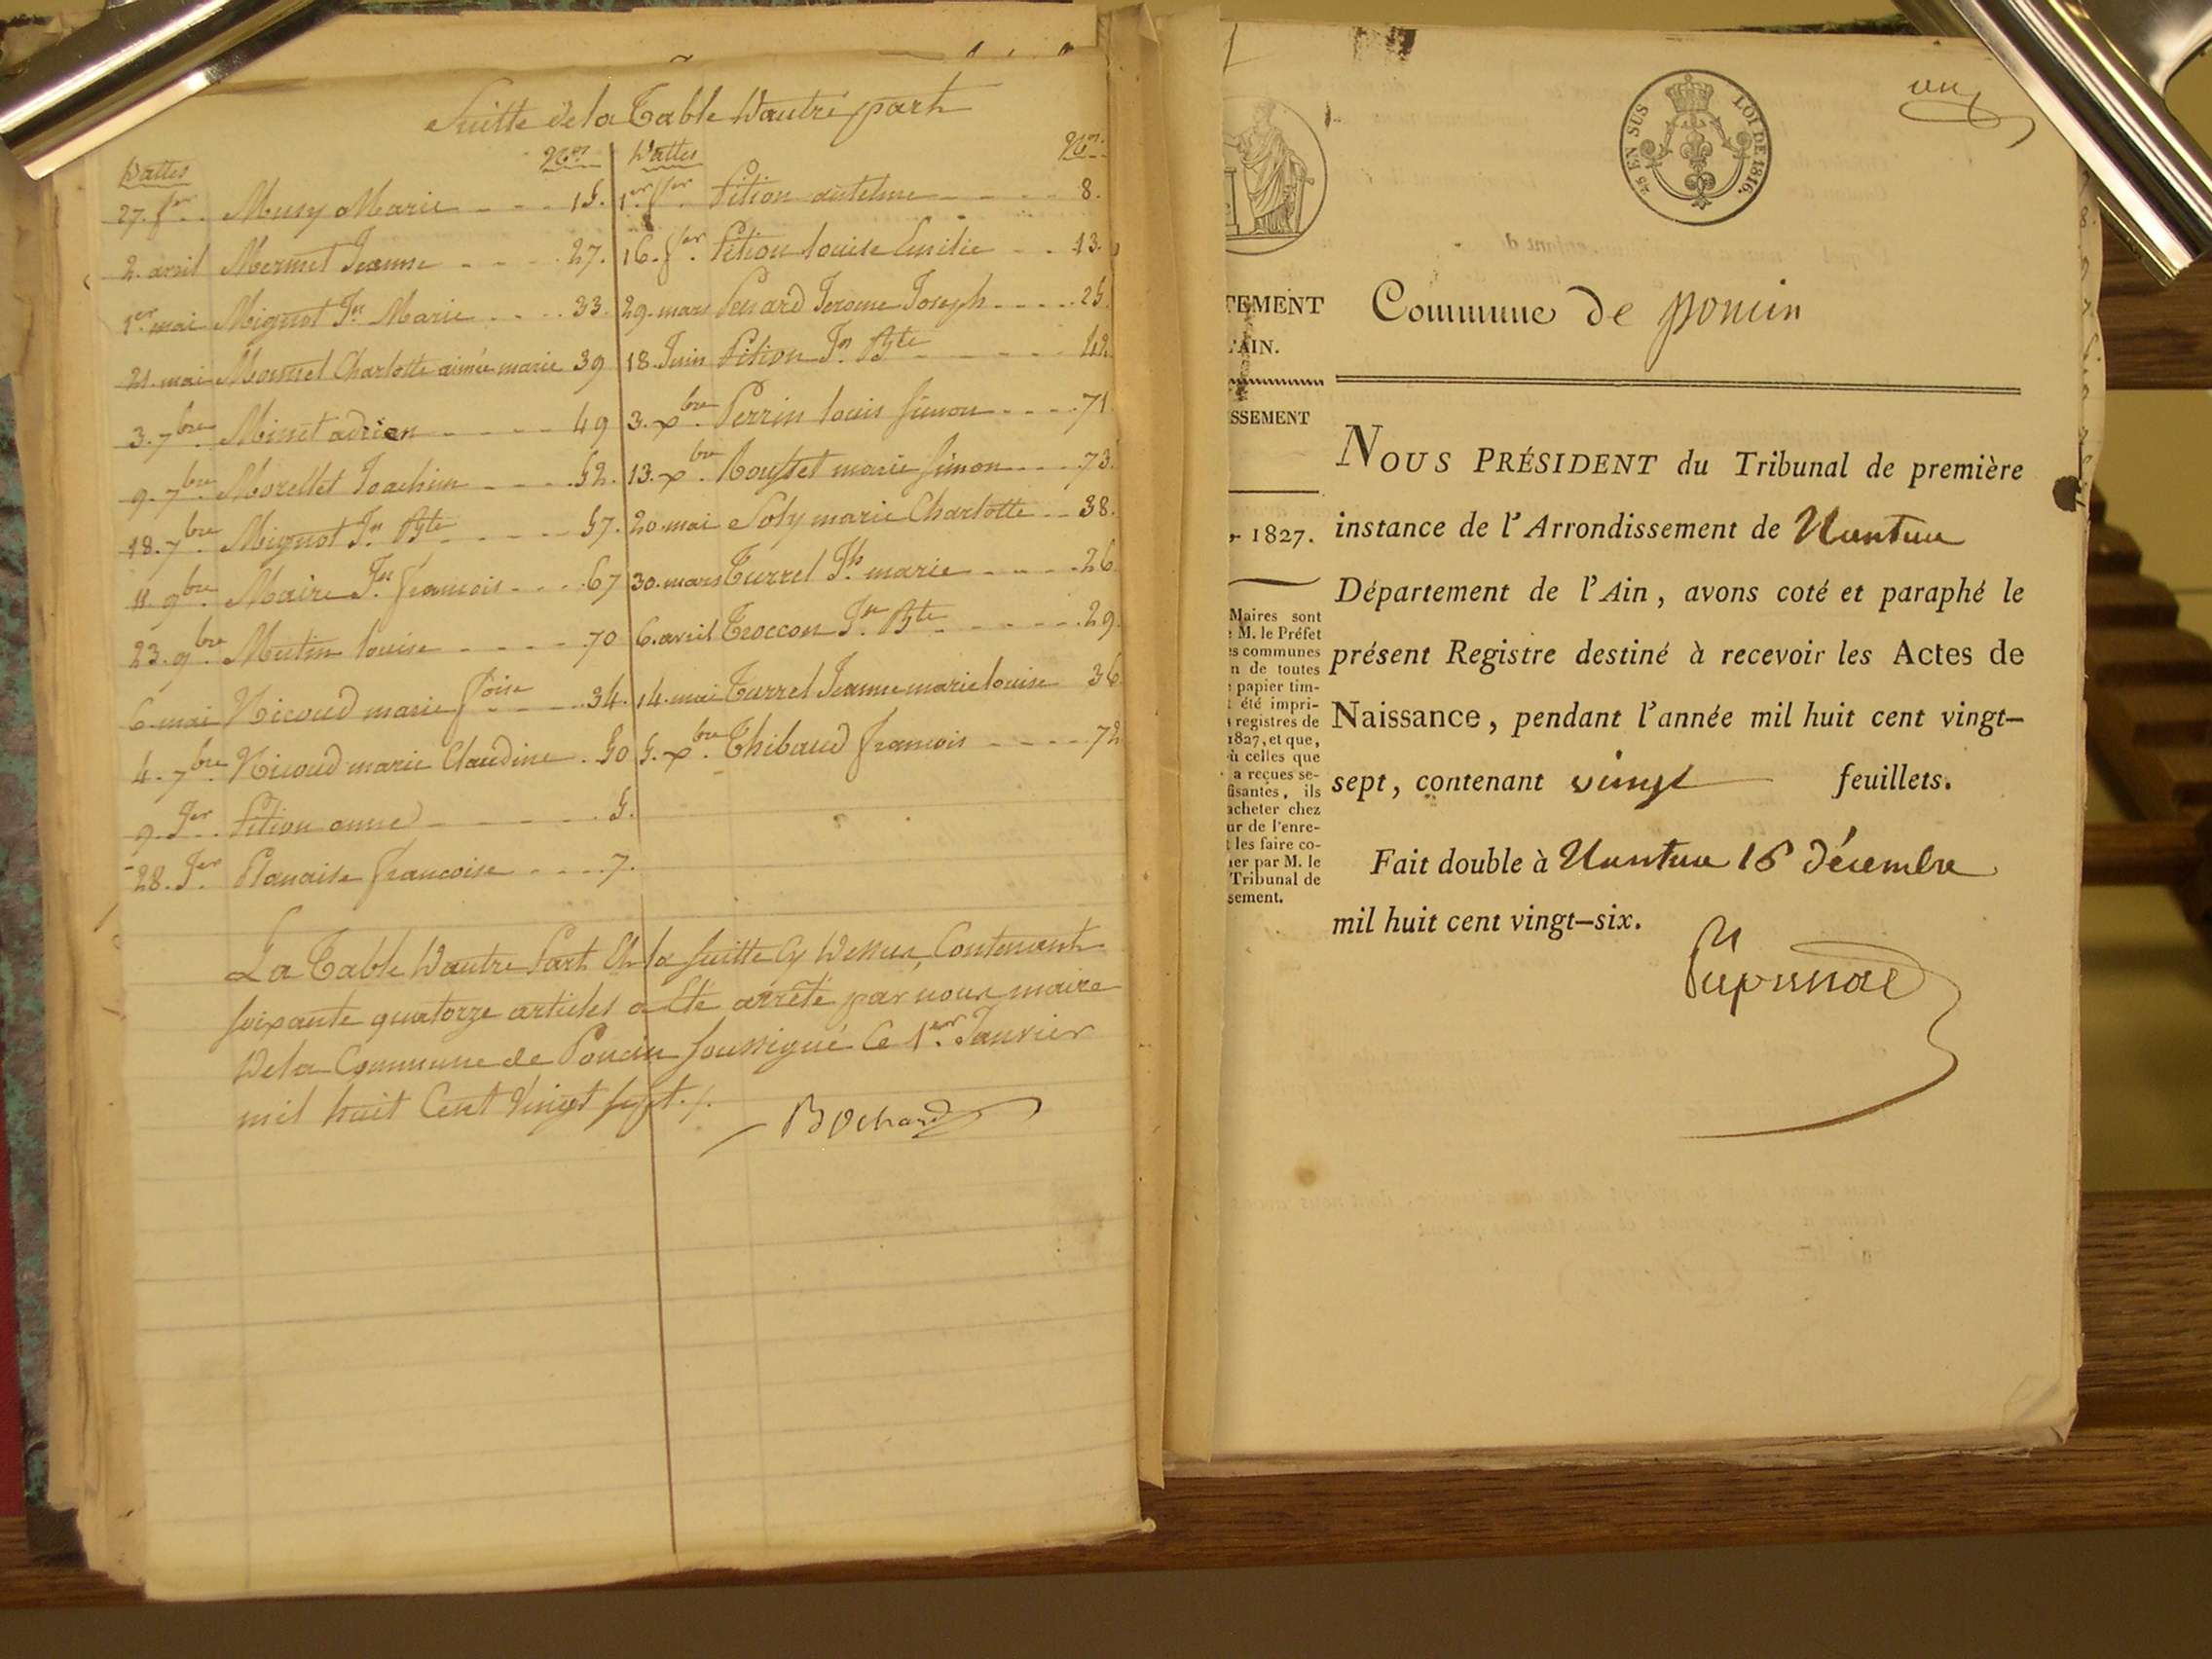 Suitte de la Table Dautre part
Dattes Nos
27. fer. Musy Marie 15.
2. avril Mermet Jeanne 27.
1er mai Mignot Jn Marie 33.
21. mai Monnet Charlotte aimée marie 39
3. 7bre Minet adrien 49
9. 7bre Morellet Joachim 52.
18. 7bre Mignot Jn Bte 57.
11. 9bre Maire Jn françois 67
23. 9bre Mutin louise 70
6. mai Nicoud marie foise 34.
4. 7bre Nicoud marie Claudine 50
9. Jer Pition anne 5.
28. Jer Planaise francoise 7.
Dattes Nos
1er fer Pition antelme 8.
16. fer. Pition louise Emilie 13.
29. mars Penard Jerome Joseph 25.
18. Juin Pition Jn Bte 42.
3. xbre Perrin louis simon 71.
13. xbre Rousset marie simon 73.
20. mai Soly marie Charlotte 38.
30. mars Turrel Jh marie 26.
6. avril Troccon Jn Bte 29.
14. mai Turrel Jeanne marie louise 36.
5. xbre Thibaud françois 72
La Table Dautre Part Et la suitte Cy Dessus, Contenant
soixante quatorze articles a Eté arrêté par nous maire
De la Commune de Poncin soussigné Ce 1er. Janvier
mil huit Cent Vingt sept ./.
Bochard
un
45 EN SUS LOI DE 1816.
TEMENT
'AIN.
SSEMENT
1827.
Maires sont
M. le Préfet
s communes
n de toutes
papier tim-
été impri-
registres de
1827, et que,
ù celles que
a reçues se-
fisantes, ils
acheter chez
ur de l'enre-
les faire co-
ier par M. le
Tribunal de
sement.
Commune de poncin
NOUS PRÉSIDENT du Tribunal de première
instance de l'Arrondissement de Nantua
Département de l'Ain, avons coté et paraphé le
présent Registre destiné à recevoir les Actes de
Naissance, pendant l'année mil huit cent vingt-
sept, contenant vingt feuillets.
Fait double à Nantua 16 décembre
mil huit cent vingt-six.